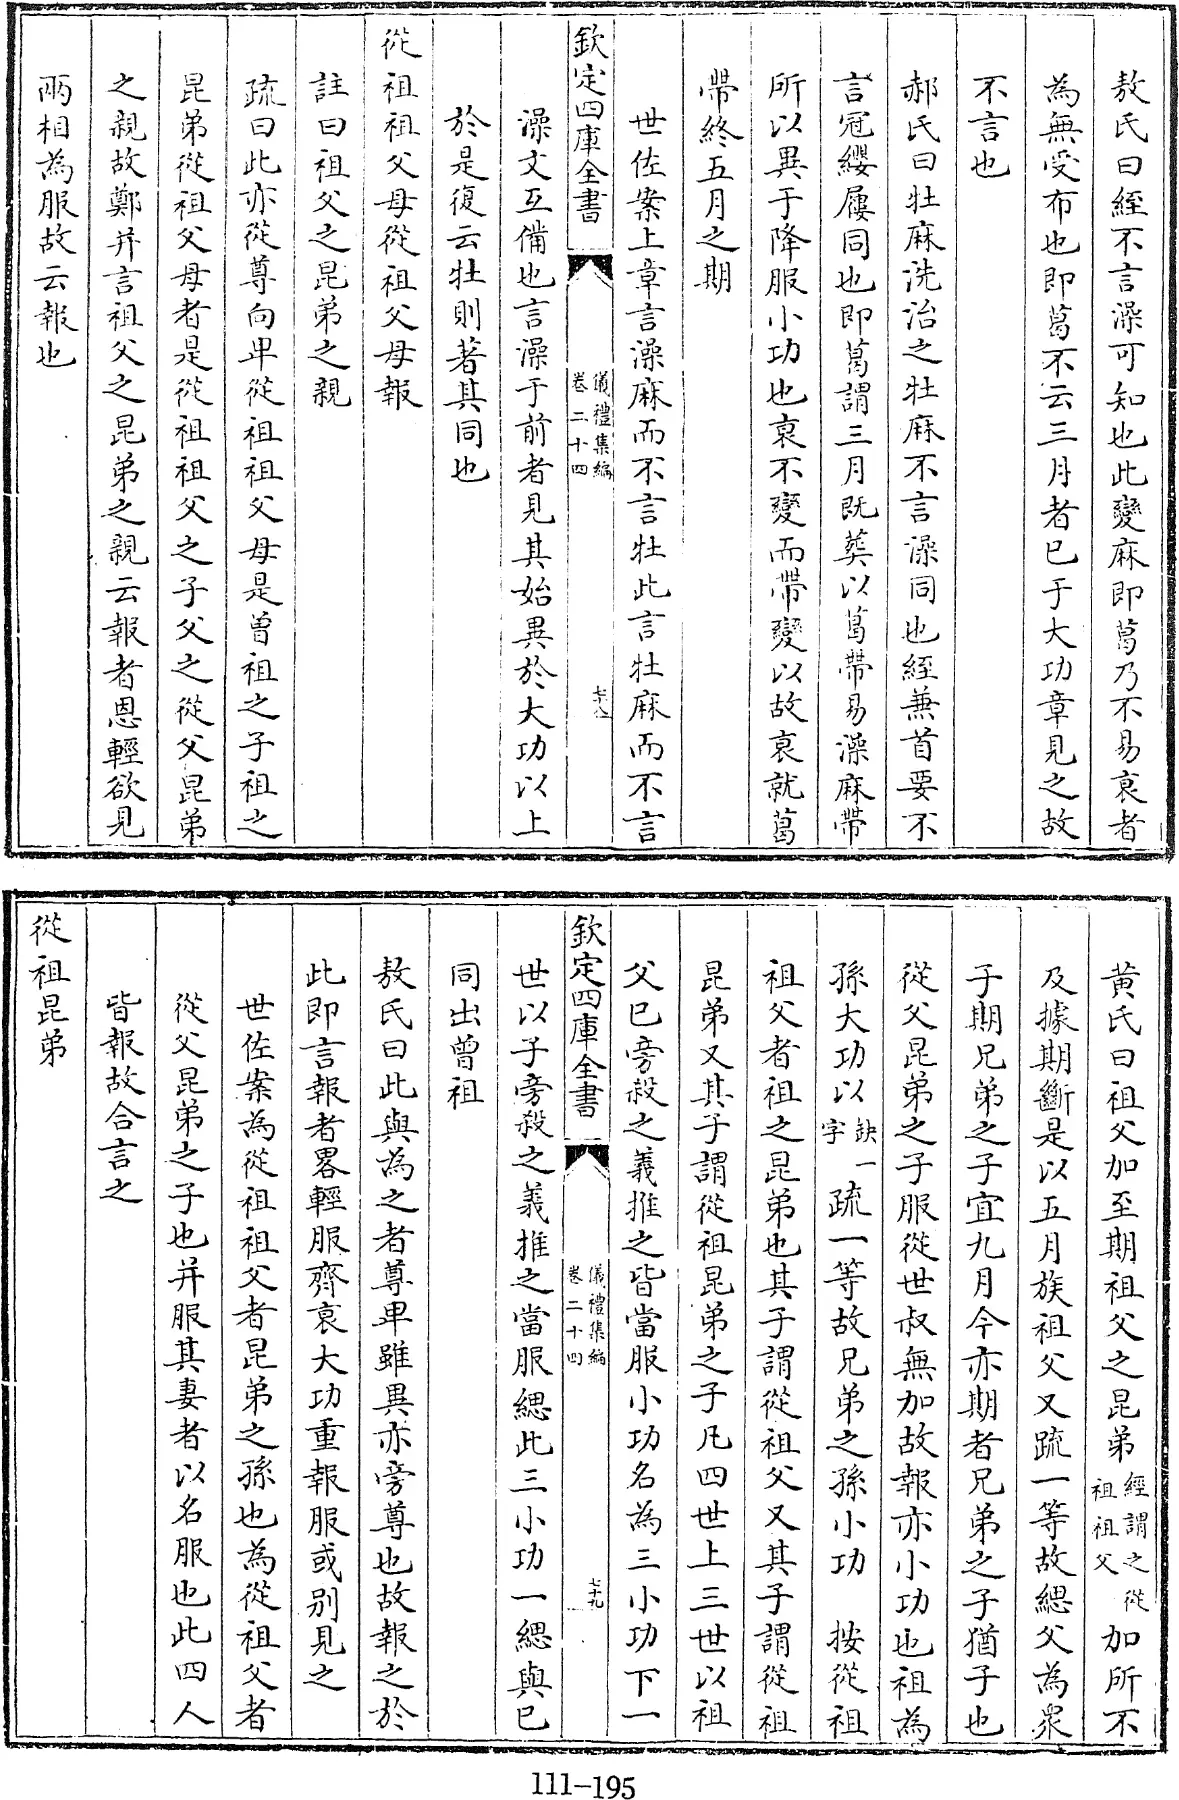 敖氏曰絰不言澡可知也此變麻即葛乃不易衰者
為無受布也即葛不云三月者已于大功章見之故
不言也
郝氏曰牡麻洗治之牡麻不言澡同也絰兼首要不
言冠纓屨同也即葛謂三月既葬以葛帶易澡麻帶
所以異于降服小功也衰不變而帶變以故衰就葛
帶終五月之期
世佐案上章言澡麻而不言牡此言牡麻而不言
欽定四庫全書
儀禮集編
卷二十四
七十八
澡文互備也言澡于前者見其始異於大功以上
於是復云牡則著其同也
從祖祖父母從祖父母報
註曰祖父之昆弟之親
疏曰此亦從尊向卑從祖祖父母是曾祖之子祖之
昆弟從祖父母者是從祖祖父之子父之從父昆弟
之親故鄭并言祖父之昆弟之親云報者恩輕欲見
兩相為服故云報也
黃氏曰祖父加至期祖父之昆弟經謂之從祖祖父加所不
及據期斷是以五月族祖父又疏一等故緦父為眾
子期兄弟之子宜九月今亦期者兄弟之子猶子也
從父昆弟之子服從世叔無加故報亦小功也祖為
孫大功以缺一字疏一等故兄弟之孫小功 按從祖
祖父者祖之昆弟也其子謂從祖父又其子謂從祖
昆弟又其子謂從祖昆弟之子凡四世上三世以祖
父已旁殺之義推之皆當服小功名為三小功下一
欽定四庫全書
儀禮集編
卷二十四
七十九
世以子旁殺之義推之當服緦此三小功一緦與已
同出曾祖
敖氏曰此與為之者尊卑雖異亦旁尊也故報之於
此即言報者畧輕服齊衰大功重報服或別見之
世佐案為從祖祖父者昆弟之孫也為從祖父者
從父昆弟之子也并服其妻者以名服也此四人
皆報故合言之
從祖昆弟
111-195